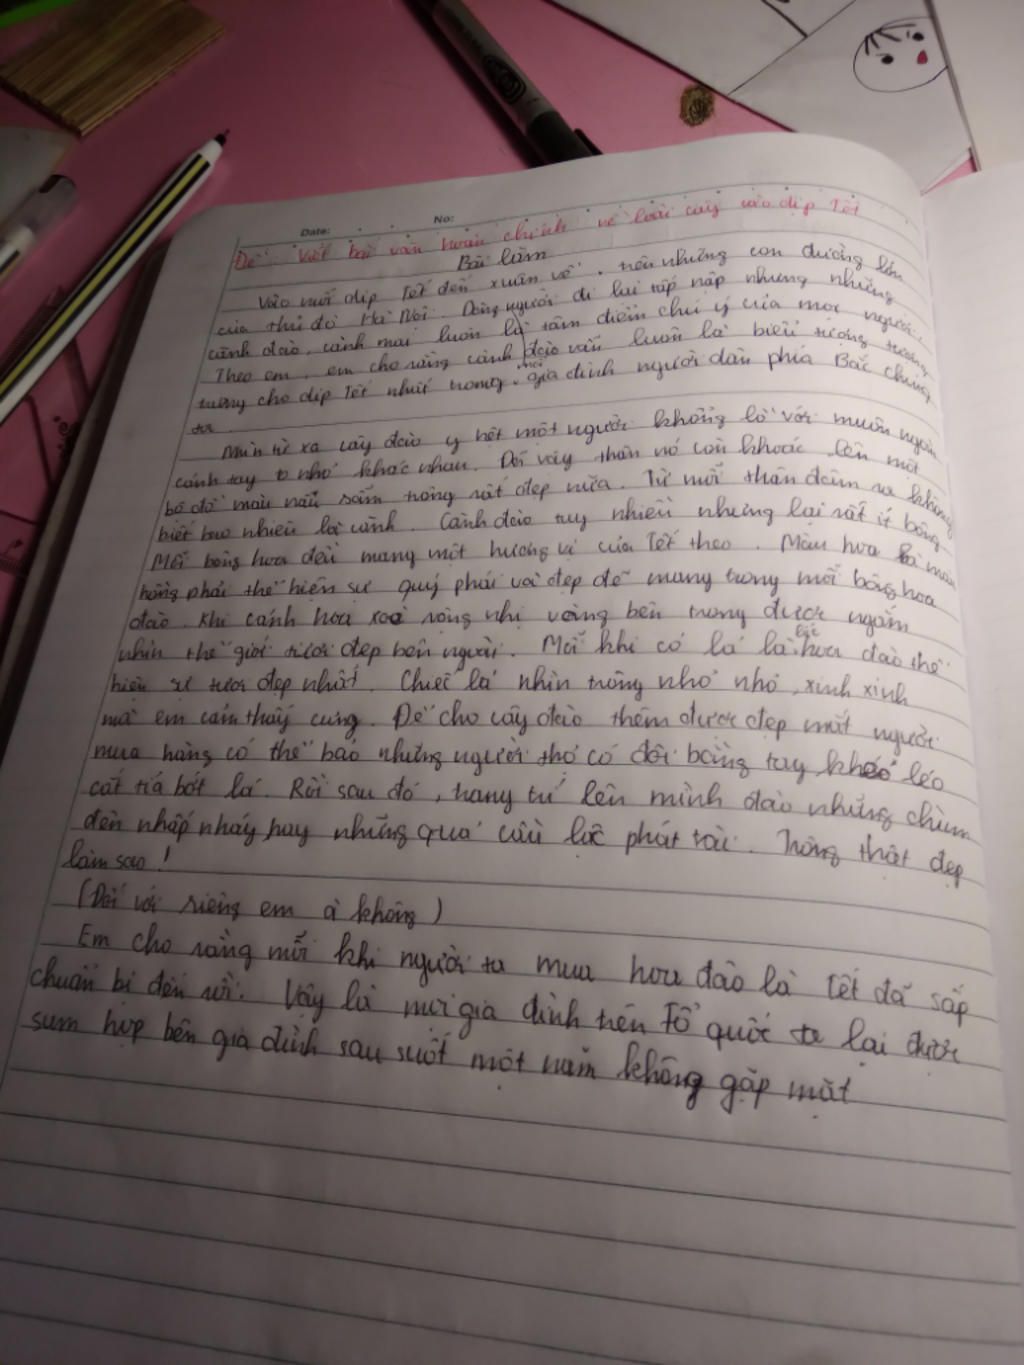 Date: No:
Đề: Viết bài văn hoàn chỉnh về loài cây vào dịp Tết
Bài làm
Vào mỗi dịp Tết đến xuân về, trên những con đường lớn
của thủ đô Hà Nội. Dòng người đi lại tấp nập nhưng những
cành đào, cành mai luôn là tâm điểm chú ý của mọi người.
Theo em, em cho rằng cành đào vẫn luôn là biểu tượng tượng
trưng cho dịp Tết nhất trong mỗi gia đình người dân phía Bắc chúng
ta.
Nhìn từ xa cây đào y hệt một người khổng lồ với muôn ngàn
cánh tay to nhỏ khác nhau. Đã vậy thân nó còn khoác lên một
bộ đồ màu nâu sẫm trông rất đẹp nữa. Từ mỗi thân đâm ra không
biết bao nhiêu là cành. Cành đào tuy nhiều nhưng lại rất ít bông.
Mỗi bông hoa đều mang một hương vị của Tết theo. Màu hoa là màu
hồng phải thể hiện sự quý phái và đẹp đẽ mang trong mỗi bông hoa
đào. Khi cánh hoa xoè rộng nhị vàng bên trong được ngắm
nhìn thế giới tươi đẹp bên ngoài. Mỗi khi có lá là lúc hoa đào thể
hiện sự tươi đẹp nhất. Chiếc lá nhìn trông nho nhỏ, xinh xinh
mà em cảm thấy cưng. Để cho cây đào thêm được đẹp mắt người
mua hàng có thể bảo những người thợ có đôi bàng tay khéo léo
cắt tỉa bớt lá. Rồi sau đó, trang trí lên mình đào những chùm
đèn nhấp nháy hay những quả cầu lộc phát tài. Trông thật đẹp
làm sao!
(Đối với riêng em ạ không)
Em cho rằng mỗi khi người ta mua hoa đào là Tết đã sắp
chuẩn bị đến rồi. Vậy là mọi gia đình trên Tổ quốc ta lại được
sum họp bên gia đình sau suốt một năm không gặp mặt